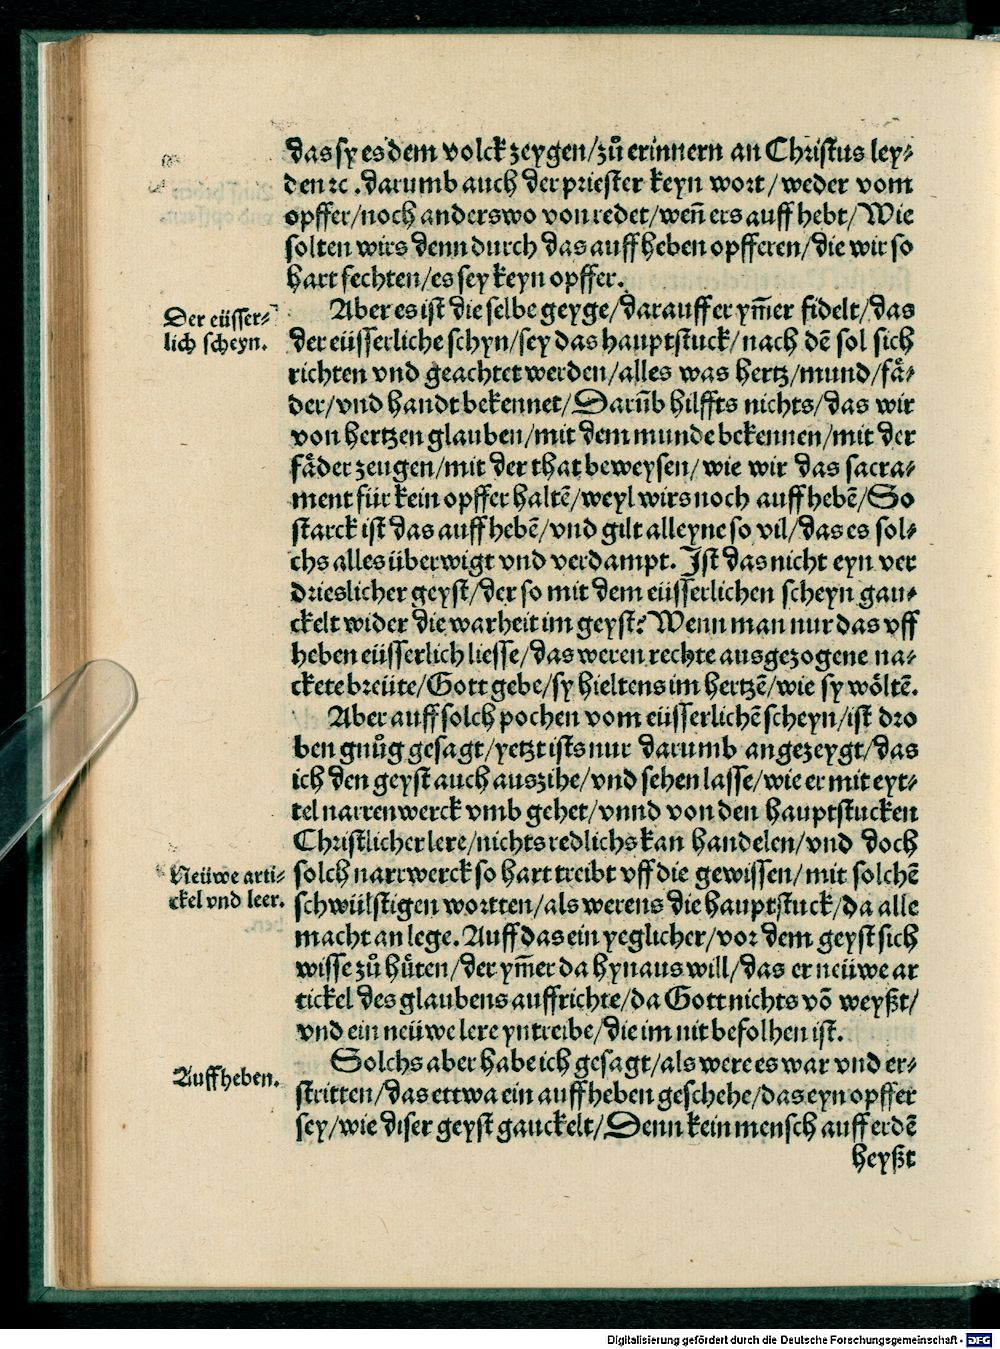 das sy es dem volck zeygen/zů erinnern an Christus ley⸗
den ꝛc. darumb auch der priester keyn wort/weder vom
opffer/noch anderswo von redet/weñ ers auff hebt/Wie
solten wirs denn durch das auff heben opfferen/die wir so
hart fechten/es sey keyn opffer.
Aber es ist die selbe geyge/darauff er ym̃er fidelt/das
Der eüsser⸗
lich scheyn.
der eüsserliche schyn/sey das hauptstuck/nach dē sol sich
richten vnd geachtet werden/alles was hertz/mund/fåͤ⸗
der/vnd handt bekennet/Darūb hilffts nichts/das wir
von hertzen glauben/mit dem munde bekennen/mit der
fåͤder zeugen/mit der that beweysen/wie wir das sacra⸗
ment für kein opffer haltē/weyl wirs noch auff hebē/So
starck ist das auff hebē/vnd gilt alleyne so vil/das es sol⸗
chs alles überwigt vnd verdampt. Ist das nicht eyn ver
drieslicher geyst/der so mit dem eüsserlichen scheyn gau⸗
ckelt wider die warheit im geyst? Wenn man nur das vff
heben eüsserlich liesse/das weren rechte ausgezogene na⸗
ckete breüte/Gott gebe/sy hieltens im hertzē/wie sy wöltē.
Aber auff solch pochen vom eüsserlichē scheyn/ist dro
ben gnůg gesagt/yetzt ists nur darumb angezeygt/das
ich den geyst auch auszihe/vnd sehen lasse/wie er mit eyt⸗
tel narrenwerck vmb gehet/vnnd von den hauptstucken
Christlicher lere/nichts redlichs kan handelen/vnd doch
Neüwe arti⸗
ckel vnd leer.
solch narrwerck so hart treibt vff die gewissen/mit solchē
schwülstigen wortten/als werens die hauptstuck/da alle
macht an lege. Auff das ein yeglicher/vor dem geyst sich
wisse zů hüten/der ym̃er da hynaus will/das er neüwe ar
tickel des glaubens auffrichte/da Gott nichts vō weyßt/
vnd ein neüwe lere yntreibe/die im nit befolhen ist.
Auff heben.
Solchs aber habe ich gesagt/als were es war vnd er⸗
stritten/das ettwa ein auff heben geschehe/das eyn opffer
sey/wie diser geyst gauckelt/Denn kein mensch auff erdē
heyßt
Digitalisierung gefördert durch die Deutsche Forschungsgemeinschaft - DFG